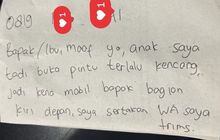 0819
1
1
1
Bapak/Ibu, maaf yo, anak saya
tadi buka pintu terlalu kencang,
jadi kena mobil bapak bagian
kiri depan, saya sertakan WA saya
trims.